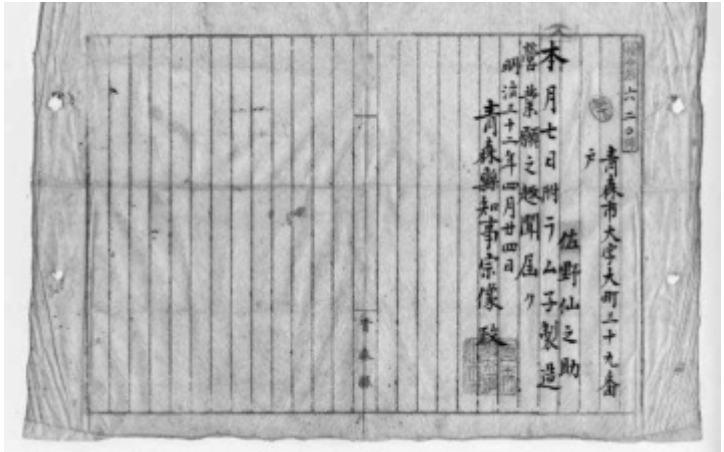 六二〇號
青森市大字大町三十九番
戸
佐野仙之助
本月七日附ラムネ製造
營業願之趣聞届ク
明治三十二年四月廿四日
青森縣知事宗像政
青森縣